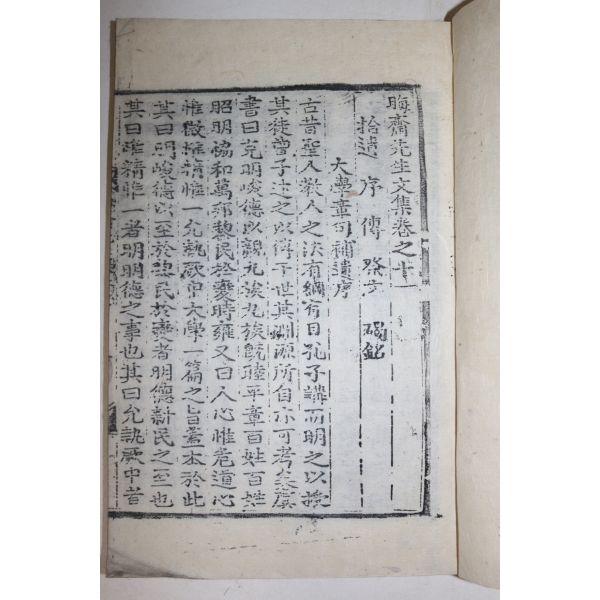 晦齋先生文集卷之十一
拾遺 序 傳 祭文 碣銘
大學章句補遺序
古昔聖人敎人之法有綱有目孔子講而明之以授
其徒曾子述之以傳于世其淵源所自亦可考矣虞
書曰克明峻德以親九族九族旣睦平章百姓百姓
昭明協和萬邦黎民於變時雍又曰人心惟危道心
惟微惟精惟一允執厥中大學一篇之旨蓋本於此
其曰明峻德以至於黎民於變者明明德新民之至也
其曰惟精惟一者明明德之事也其曰允執厥中者